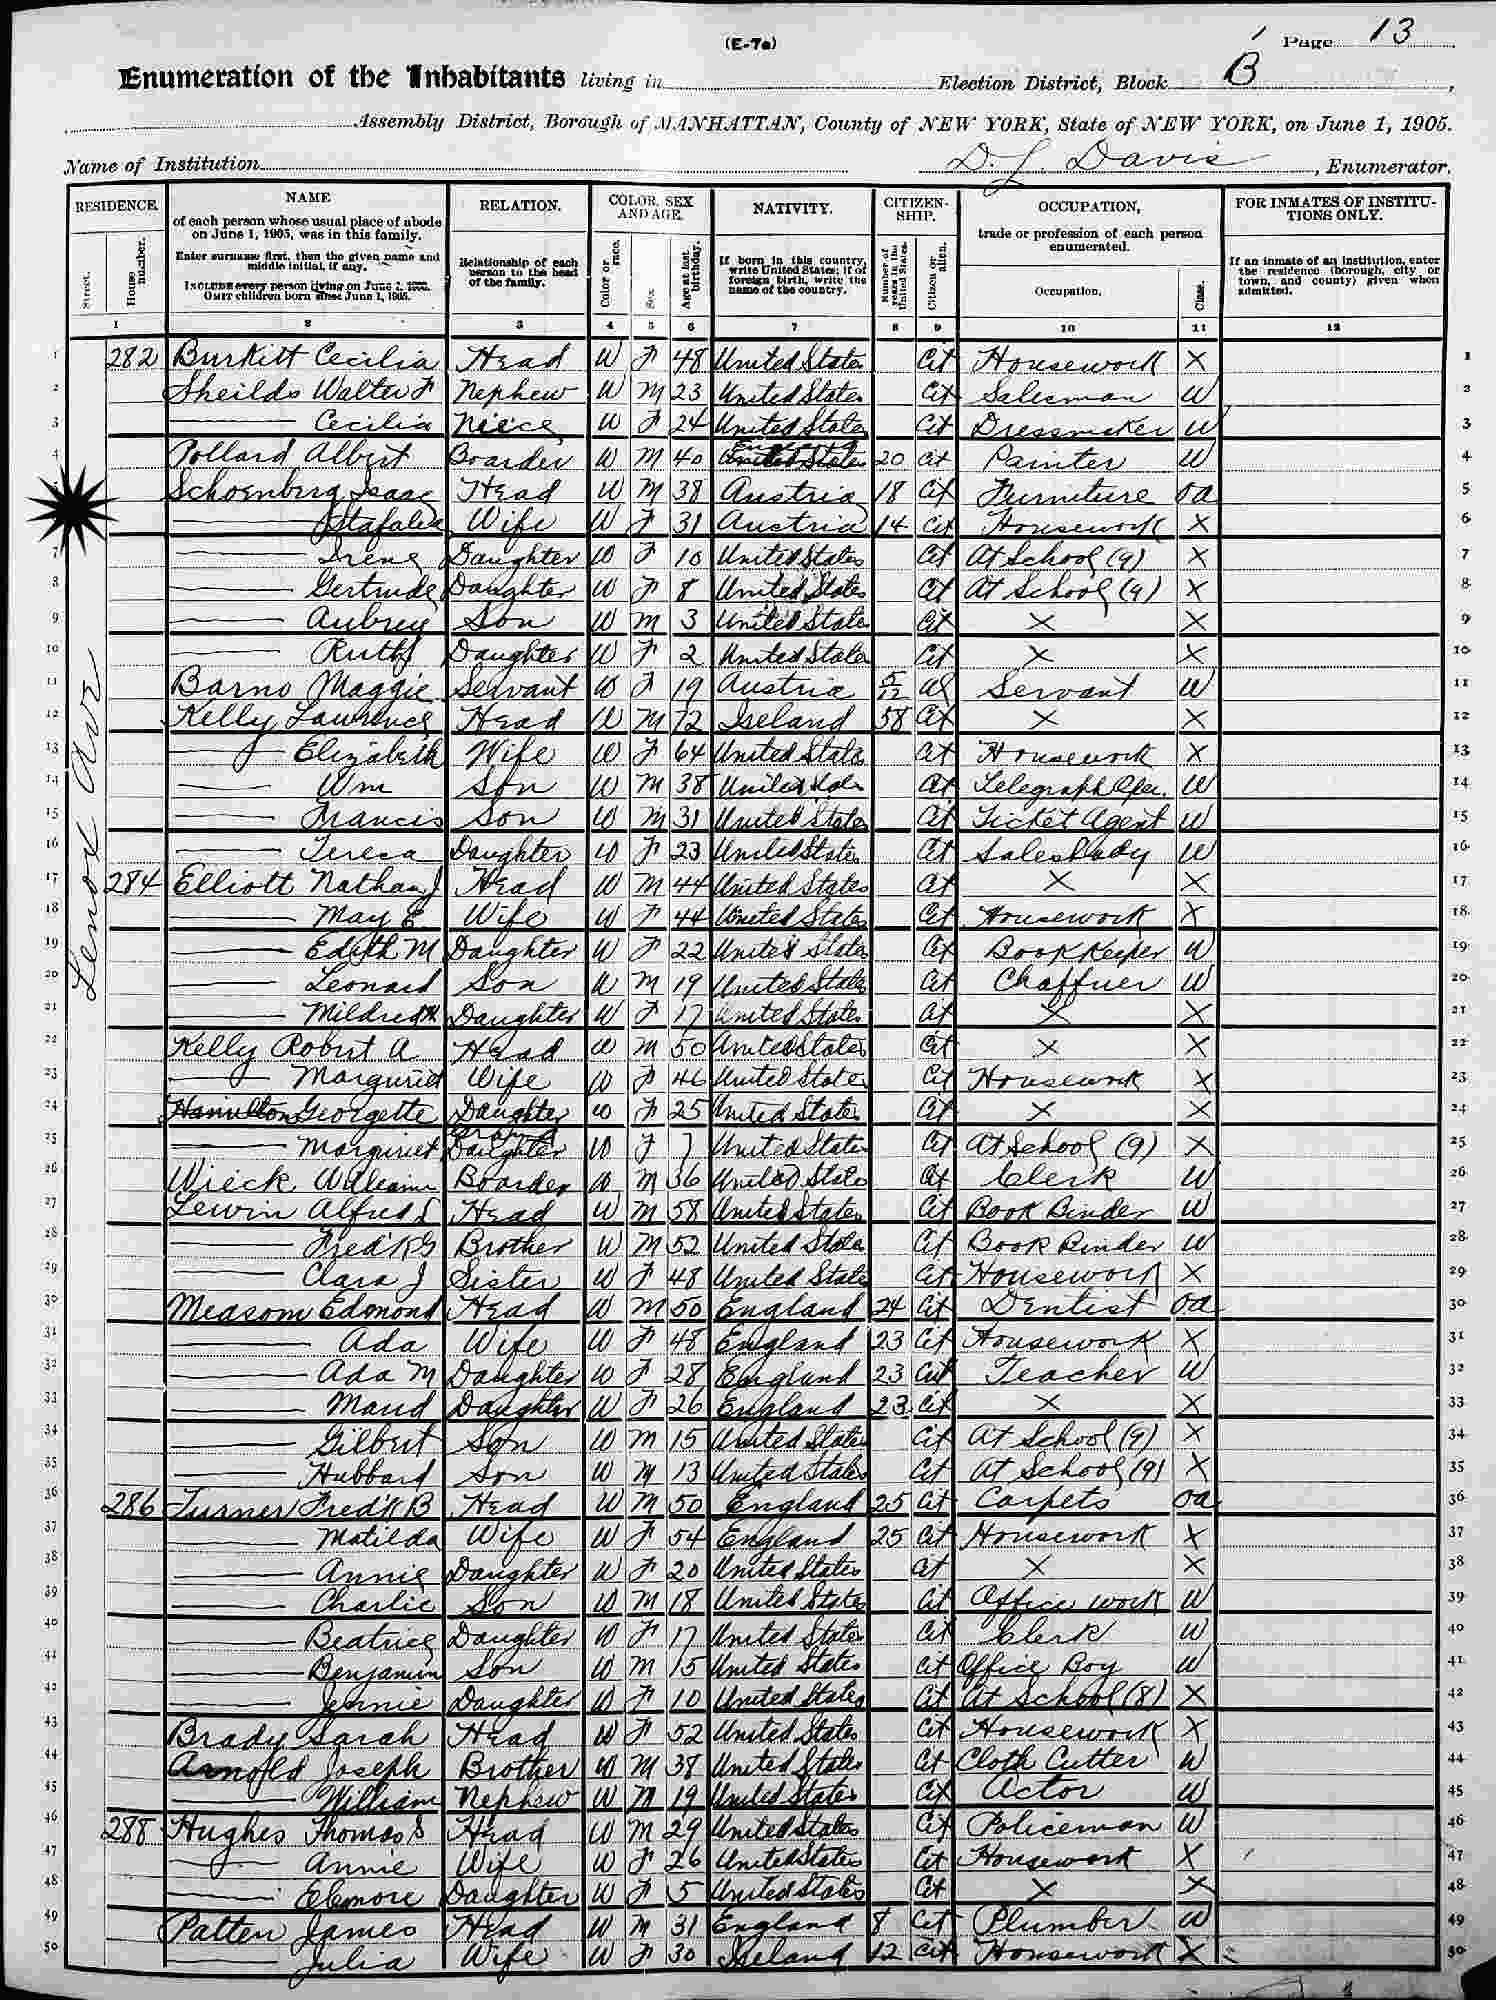 (E-7a)
Page 13
Enumeration of the Inhabitants living in Election District, Block B,
Assembly District, Borough of MANHATTAN, County of NEW YORK, State of NEW YORK, on June 1, 1905.
Name of Institution D. L. Davis, Enumerator.
RESIDENCE. NAME RELATION. COLOR, SEX AND AGE. NATIVITY. CITIZENSHIP. OCCUPATION, FOR INMATES OF INSTITUTIONS ONLY.
Street. House number. of each person whose usual place of abode on June 1, 1905, was in this family. Enter surname first, then the given name and middle initial, if any. INCLUDE every person living on June 1, 1905. OMIT children born since June 1, 1905. Relationship of each person to the head of the family. Color or race. Sex Age at last birthday. If born in this country, write United States; if of foreign birth, write the name of the country. Number of years in the United States. Citizen or alien. trade or profession of each person enumerated. Occupation. Class. If an inmate of an institution, enter the residence (borough, city or town, and county) given when admitted.
1 2 3 4 5 6 7 8 9 10 11 12
Lenox Ave
1 282 Burkitt Cecilia Head W F 48 United States Cit Housework X 1
2 Sheilds Walter F Nephew W M 23 United States Cit Salesman W 2
3 Cecilia Niece W F 24 United States Cit Dressmaker W 3
4 Pollard Albert Boarder W M 40 United States 20 Cit Painter W 4
Schoenberg Isaac Head W M 38 Austria 18 Cit Furniture oa 5
Wife W F 31 Austria 14 Cit Housework X 6
7 Irene Daughter W F 10 United States Cit At School (9) X 7
8 Gertrude Daughter W F 8 United States Cit At School (9) X 8
9 Aubrey Son W M 3 United States Cit X X 9
10 Ruth Daughter W F 2 United States Cit X X 10
11 Barno Maggie Servant W F 19 Austria 5/12 al Servant W 11
12 Kelly Lawrence Head W M 72 Ireland 58 Cit X X 12
13 Elizabeth Wife W F 64 United States Cit Housework X 13
14 Wm Son W M 38 United States Cit Telegraph Oper. W 14
15 Francis Son W M 31 United States Cit Ticket Agent W 15
16 Teresa Daughter W F 23 United States Cit Sales Lady W 16
17 284 Elliott Nathan J Head W M 44 United States Cit X X 17
18 May E Wife W F 44 United States Cit Housework X 18
19 Edith M Daughter W F 22 United States Cit Book Keeper W 19
20 Leonard Son W M 19 United States Cit Chaffuer W 20
21 Mildred M Daughter W F 17 United States Cit X X 21
22 Kelly Robert A Head W M 50 United States Cit X X 22
23 Marguriet Wife W F 46 United States Cit Housework X 23
24 Hamilton Georgette Daughter W F 25 United States Cit X X 24
25 Marguriet Grand Daughter W F 7 United States Cit At School (9) X 25
26 Wieck William Boarder W M 36 United States Cit Clerk W 26
27 Lewin Alfred S Head W M 58 United States Cit Book Binder W 27
28 Fred'k G Brother W M 52 United States Cit Book Binder W 28
29 Clara J Sister W F 48 United States Cit Housework X 29
30 Measom Edmond Head W M 50 England 24 Cit Dentist oa 30
31 Ada Wife W F 48 England 23 Cit Housework X 31
32 Ada M Daughter W F 28 England 23 Cit Teacher W 32
33 Maud Daughter W F 26 England 23 Cit X X 33
34 Gilbert Son W M 15 United States Cit At School (9) X 34
35 Hubbard Son W M 13 United States Cit At School (9) X 35
36 286 Turner Fred'k B Head W M 50 England 25 Cit Carpets oa 36
37 Matilda Wife W F 54 England 25 Cit Housework X 37
38 Annie Daughter W F 20 United States Cit X X 38
39 Charlie Son W M 18 United States Cit Office work W 39
40 Beatrice Daughter W F 17 United States Cit Clerk W 40
41 Benjamin Son W M 15 United States Cit Office Boy W 41
42 Jennie Daughter W F 10 United States Cit At School (8) X 42
43 Brady Sarah Head W F 52 United States Cit Housework X 43
44 Arnold Joseph Brother W M 38 United States Cit Cloth Cutter W 44
45 William Nephew W M 19 United States Cit Actor W 45
46 288 Hughes Thomas S Head W M 29 United States Cit Policeman W 46
47 Annie Wife W F 26 United States Cit Housework X 47
48 Elenore Daughter W F 5 United States Cit X X 48
49 Patten James Head W M 31 England 8 Cit Plumber W 49
50 Julia Wife W F 30 Ireland 12 Cit Housework X 50